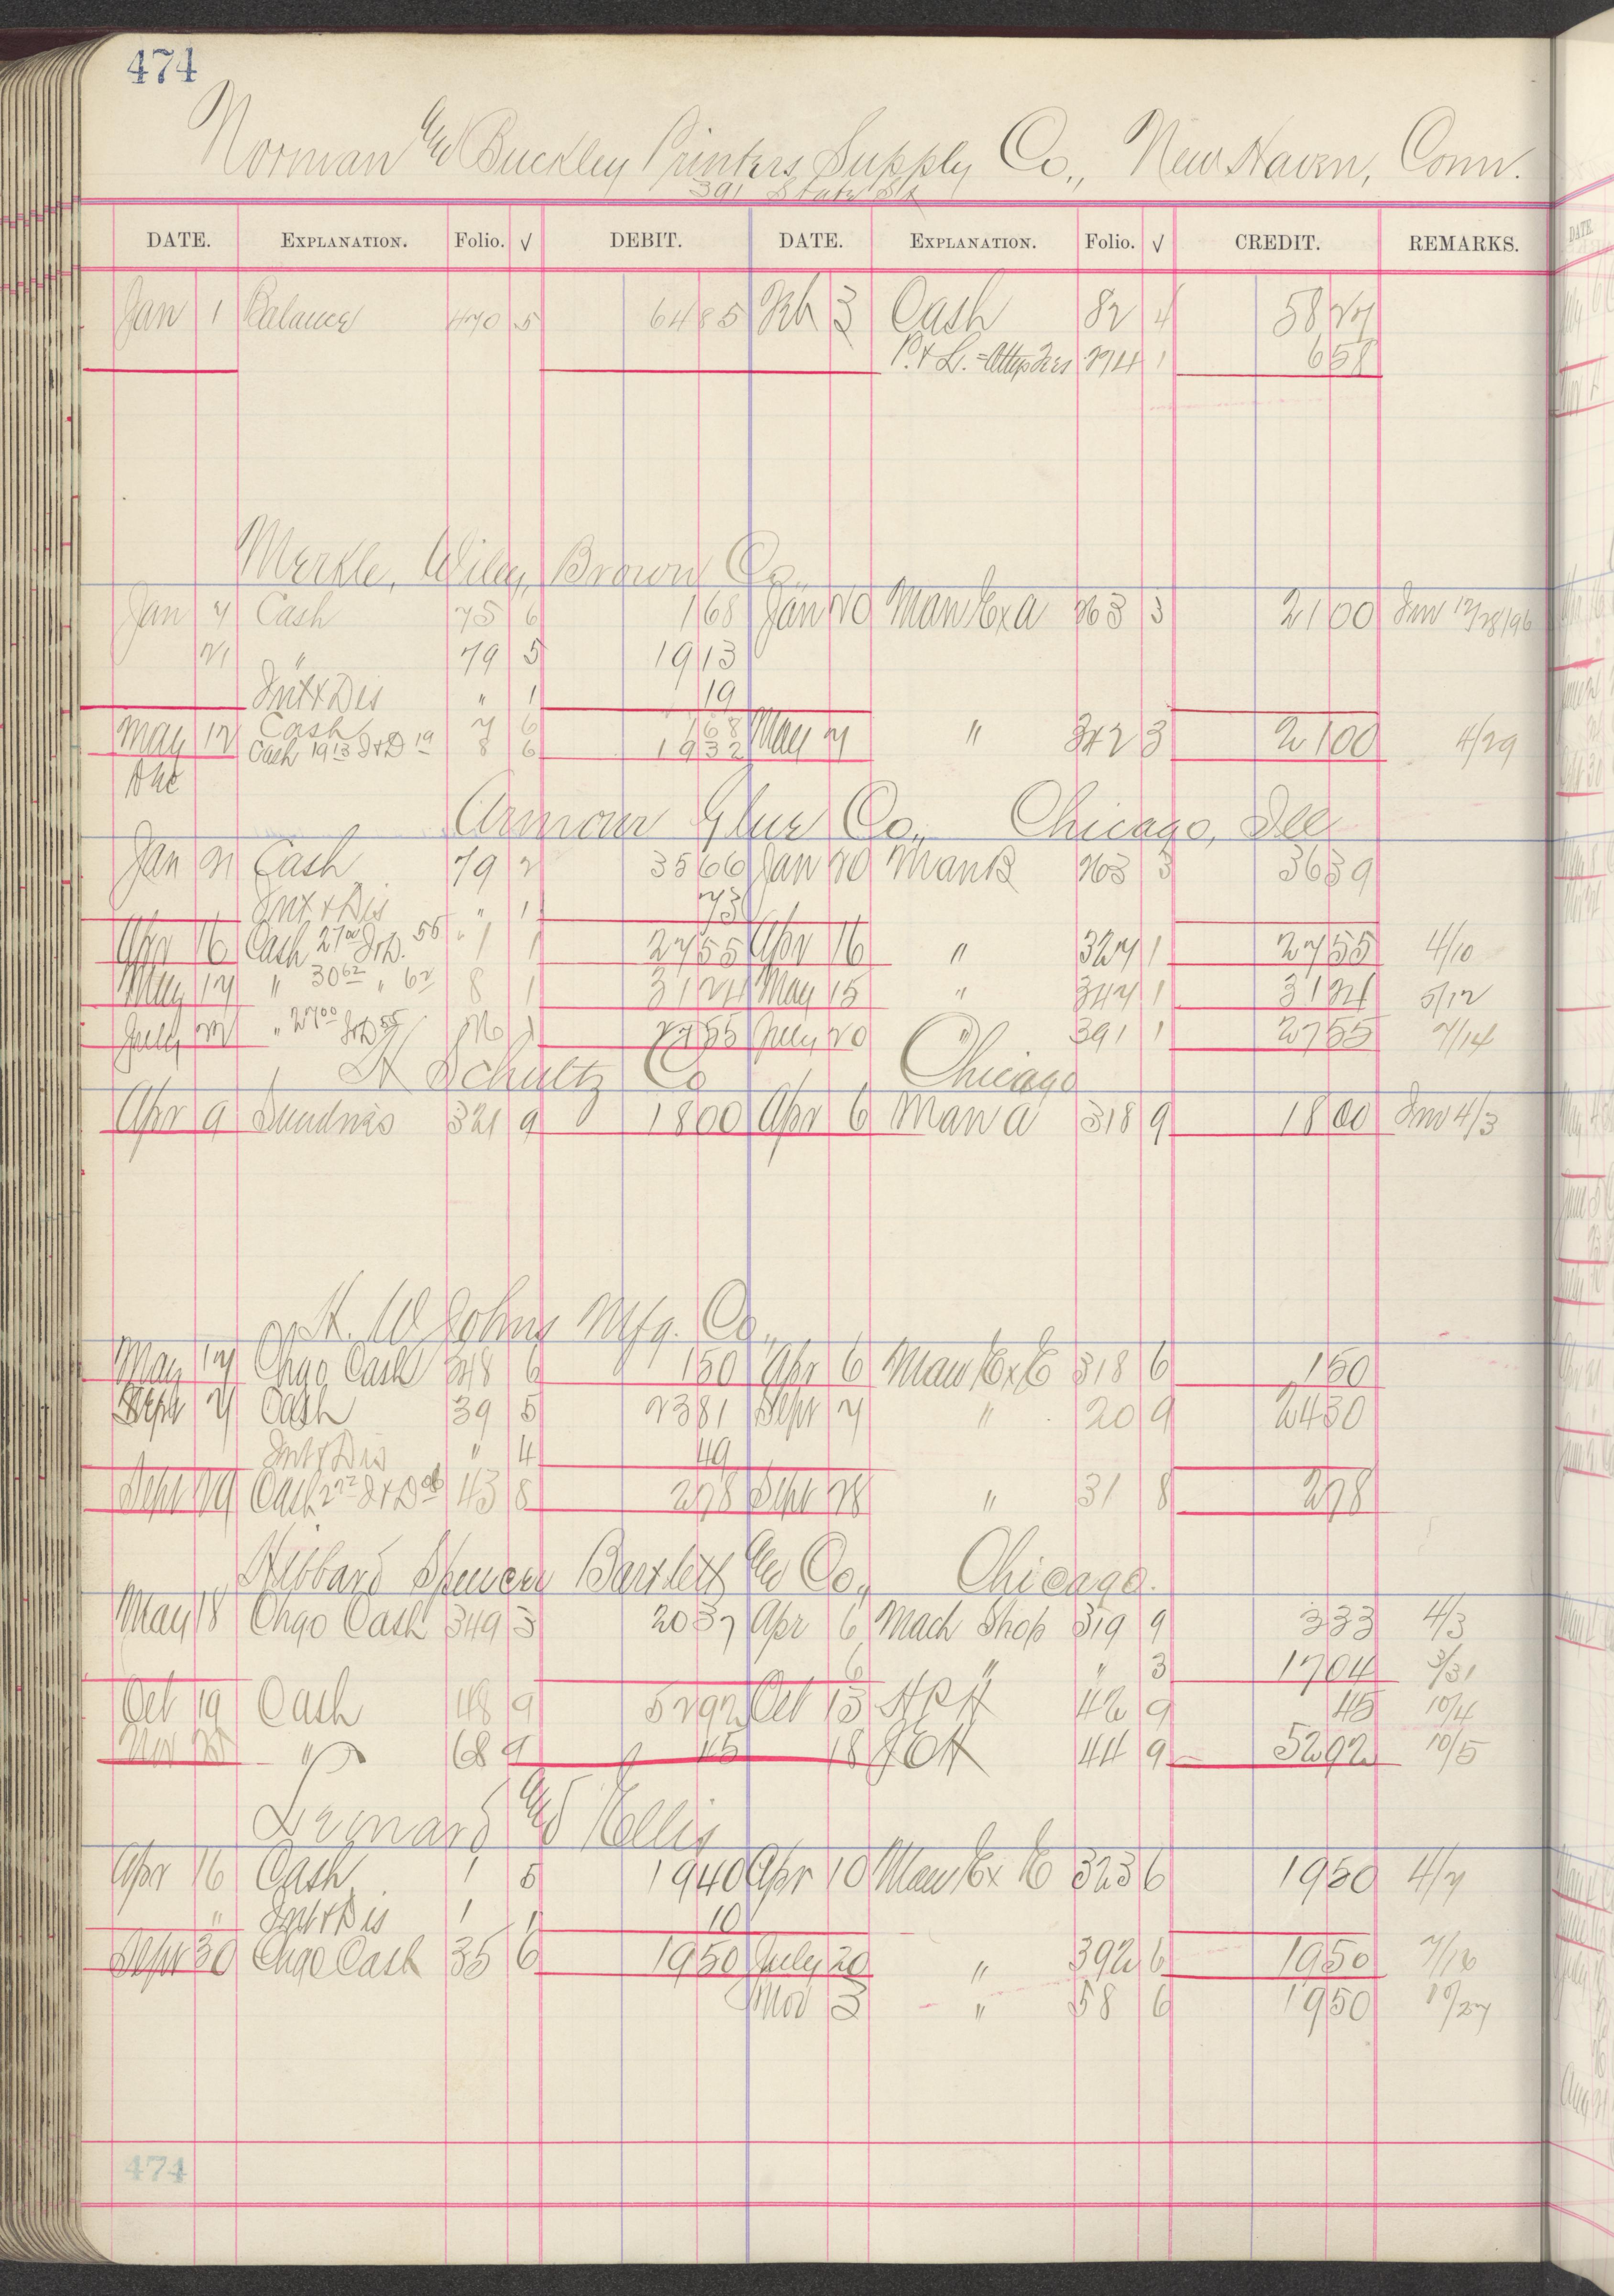 474
Norman and Buckley Printers Supply Co., New Haven, Conn.
391 State St
DATE. EXPLANATION. Folio. √ DEBIT. DATE. EXPLANATION. Folio. √ CREDIT. REMARKS.
Jan 1 Balance 470 5 64 85 Feb 3 Cash 82 4 58 27
P. & L. = Attys Fees 274 1 6 58
Merkle, Wiley, Brown Co.,
Jan 7 Cash 75 6 1 68 Jan 20 Man Ex a 263 3 21 00 Inv 12/28/96
21 " 79 5 19 13
Int & Dis " 1 19
May 12 Cash 7 6 1 68 May 7 " 342 3 21 00 4/29
Cash 19 13 I & D 19 8 6 19 32
Armour Glue Co., Chicago, Ill
Jan 21 Cash 79 2 35 66 Jan 20 Man B 263 3 36 39
Int & Dis " 1 73
Apr 16 Cash 27 00 I & D. 55 1 1 27 55 Apr 16 " 327 1 27 55 4/10
May 17 " 30 62 " 62 8 1 31 24 May 15 " 347 1 31 24 5/12
July 22 " 27 00 I & D 55 26 1 27 55 July 20 " 391 1 27 55 7/14
H Schultz Co Chicago
Apr 9 Sundries 321 9 18 00 Apr 6 Man a 318 9 18 00 Inv 4/3
H. W Johns Mfg. Co.,
May 17 Chgo Cash 348 6 1 50 Apr 6 Man Ex E 318 6 1 50
Sept 7 Cash 39 5 23 81 Sept 7 " 20 9 24 30
Int & Dis " 4 49
Sept 29 Cash 2 72 I & D 06 43 8 2 78 Sept 28 " 31 8 2 78
Hibbard Spencer Bartlett and Co., Chicago.
May 18 Chgo Cash 349 3 20 37 Apr 6 Mach Shop 319 9 3 33 4/3
6 " " 3 17 04 3/31
Oct 19 Cash 48 9 52 92 Oct 13 H P H 42 9 45 10/4
Nov " 68 9 45 18 J E H 44 9 52 92 10/5
Leonard and Ellis
Apr 16 Cash 1 5 19 40 Apr 10 Man Ex E 323 6 19 50 4/7
" Int & Dis 1 1 10
Sept 30 Chgo Cash 35 6 19 50 July 20 " 392 6 19 50 7/16
Nov 3 " 58 6 19 50 10/27
474